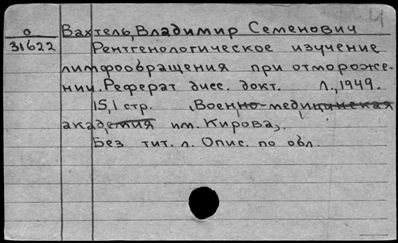 Ч
о Вахтель, Владимир Семенович
31622 Рентгенологическое изучение
лимфообращения при отмороже-
нии. Реферат дисс. докт. Л., 1949.
15,1 стр. (Военно-медицинская
академия им. Кирова).
Без тит. л. Опис. по обл.